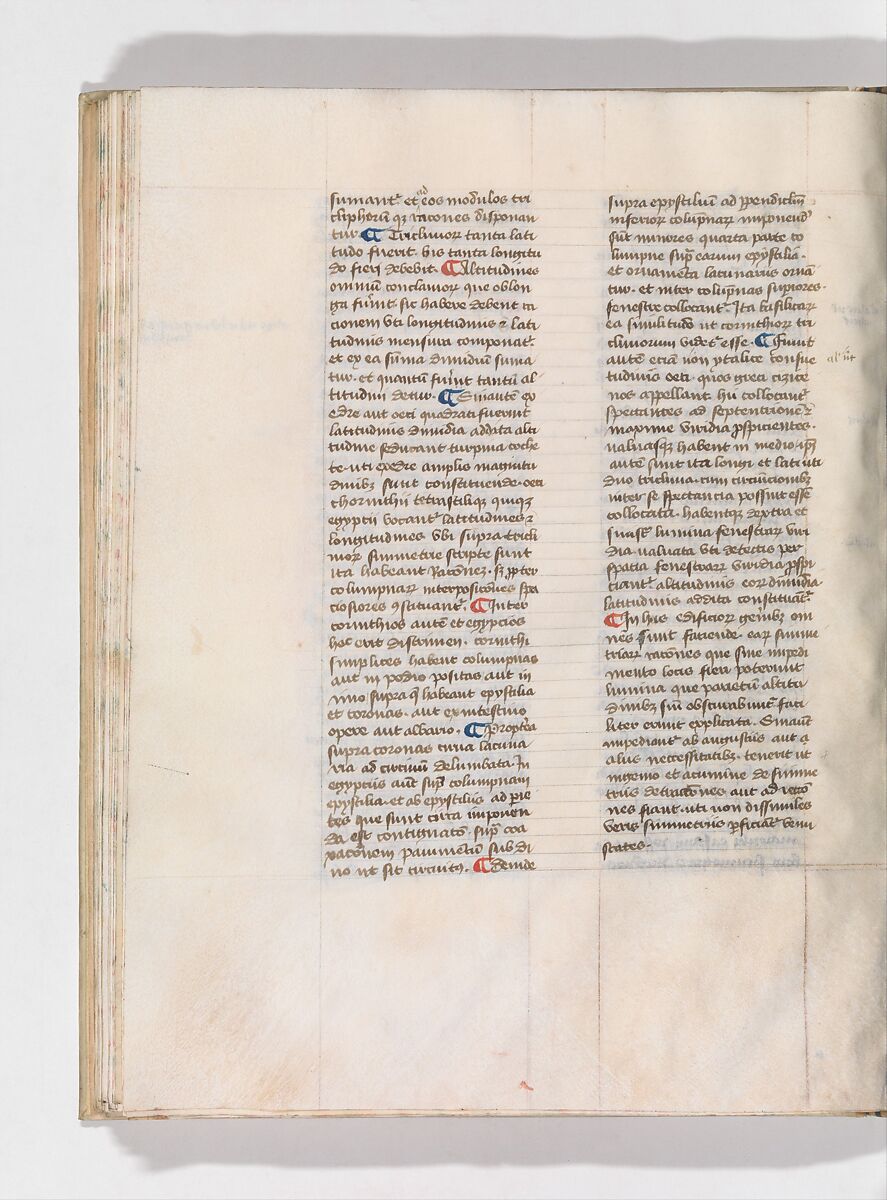 sumant᷑ et ad eos modulos tri
cliphorū qꝫ racones disponan
tur. ¶ Tricliniorꝝ tanta lati
tudo fuerit. bis tanta longitu
do fieri debebit. ¶ Altitudines
omniū conclavioꝝ que oblon
ga fuīnt. sic habere debent ra
cionem vti longitudinis ⁊ lati
tudinis mensura componat᷑
et ex ea sūma dimidium suma
tur. et quantū fuīnt tantū al
titudini detur. ¶ Sinautē ex
edre aut oeci quadrati fuerint
latitudinis dimidia addita alti
tudine seducant᷑
te. uti exedre amplis magnitu
dinibꝫ sunt constituende. oeci
chorinthii tetrastiliqꝫ quiqꝫ
egyptii vocant᷑ latitudines ⁊
longitudines vbi supra tricli
niorꝝ simmetrie scripte sunt
ita habeant racōnez. sꝫ ꝓpter
columpnarꝝ interposicōnes spa
ciosiores ꝯstituant᷑. ¶ Inter
corinthios autē et egypcios
hoc erit discrimen. corinthi
simplices habent columpnas
aut in podio positas aut in
imo supra qͣ habeant epystilia
et coronas. aut ex intestino
opere aut albario. ¶ Proptea
supra coronas curva lacuna
ria ad circinū delumbata. In
egyptiis aut̄ sup̄ columpnam
epystilia. et ab epystiliis ad parie
tes que sunt circa imponen
da est contignatō. sup̄ coa
xacōnem pavimētū sub di
vo ut sit circuitꝰ. ¶ deinde
supra epystiliū ad ꝑpendiclm̄
inferiorꝝ colūpnarꝝ imponēdꝰ
sūt minores quarta parte co
lumpne. sup̄ earum epystilia.
et ornamēta lacunariis ornā
tur. et inter colūpnas supiores.
fenestre collocant᷑. Ita basilicaꝝ
ea similitudo ut corinthioꝝ tri
cliniorum videt᷑ esse. ¶ Fiunt
autē eciā non ytalice consue
tudinis oeci. quos greci cizice
nos appellant. hii collocant᷑
spectantes ad septentrionē ⁊
maxime viridia ꝓspicientes.
valvasqꝫ habent in medio. ipī
autē sunt ita longi et lati uti
duo triclinia. cum circūicionibꝫ
inter se spectancia possint esse
collocata. habentqꝫ dextra et
lumina fenestrarꝝ viri
dia. valvata vti de tectis per
spatia fenestrarꝝ viridia ꝓspi
ciant᷑. altitudinis eorꝝ dimidia
latitudinis addita constituāt᷑
¶ In hiis edificiorꝝ gen̄ibꝫ om
nes sunt faciende. earꝝ simme
triarꝝ racōnes que sine impedi
mento locis fieri poterunt
lumina que parietū altitu
dinibꝫ si nō obscurabunt᷑ faci
liter erunt explicata. Sinaut̄
impediant᷑ ab angustiis aut a
aliis necessitatibꝫ. tenerit ut
ingenio et acumine de simme
triis detractōnes aut adiectō
nes fiant. uti non dissimiles
veris simmetriis ꝑficiāt᷑ venu
states.